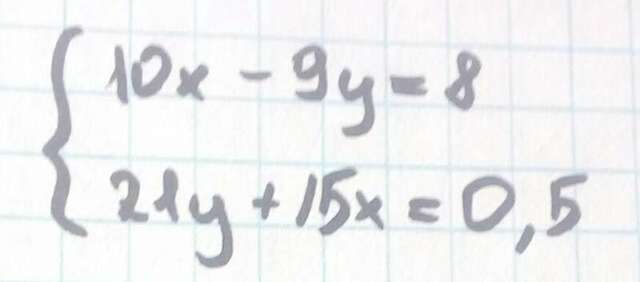 10x - 9y = 8
21y + 15x = 0,5